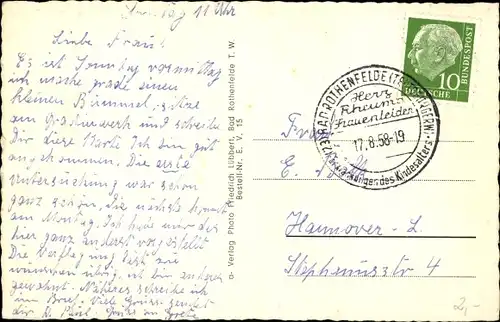 Sonntag 11 Uhr
Liebe
Es ist Sonntag vormittag
ich mache grade einen
kleinen Bummel, sitze
am Gradierwerk und schreibe
Dir diese Karte Ich bin gut
angekommen. Die erste
Untersuchung war schon
ganz schön, die nächste kommt
am Montag. Ich habe mir das
hier ganz anders vorgestellt
Die Verpflegung läßt zu
wünschen übrig, ich bin anderes
gewohnt. Näheres schreibe ich
im Brief. Viele Grüsse sendet
Dir Grüss an
a- Verlag Photo Friedrich Lübbert, Bad Rothenfelde T. W.
Bestell-Nr. E. V. 15
DEUTSCHE BUNDESPOST
10
(23) BAD ROTHENFELDE (TEUTOBURGERW)
Herz
Rheuma
Frauenleiden
17.8.58-19
Erkrankungen des Kindesalters
Frau
E.
Hannover - L.
Stephanusstr 4
2,-